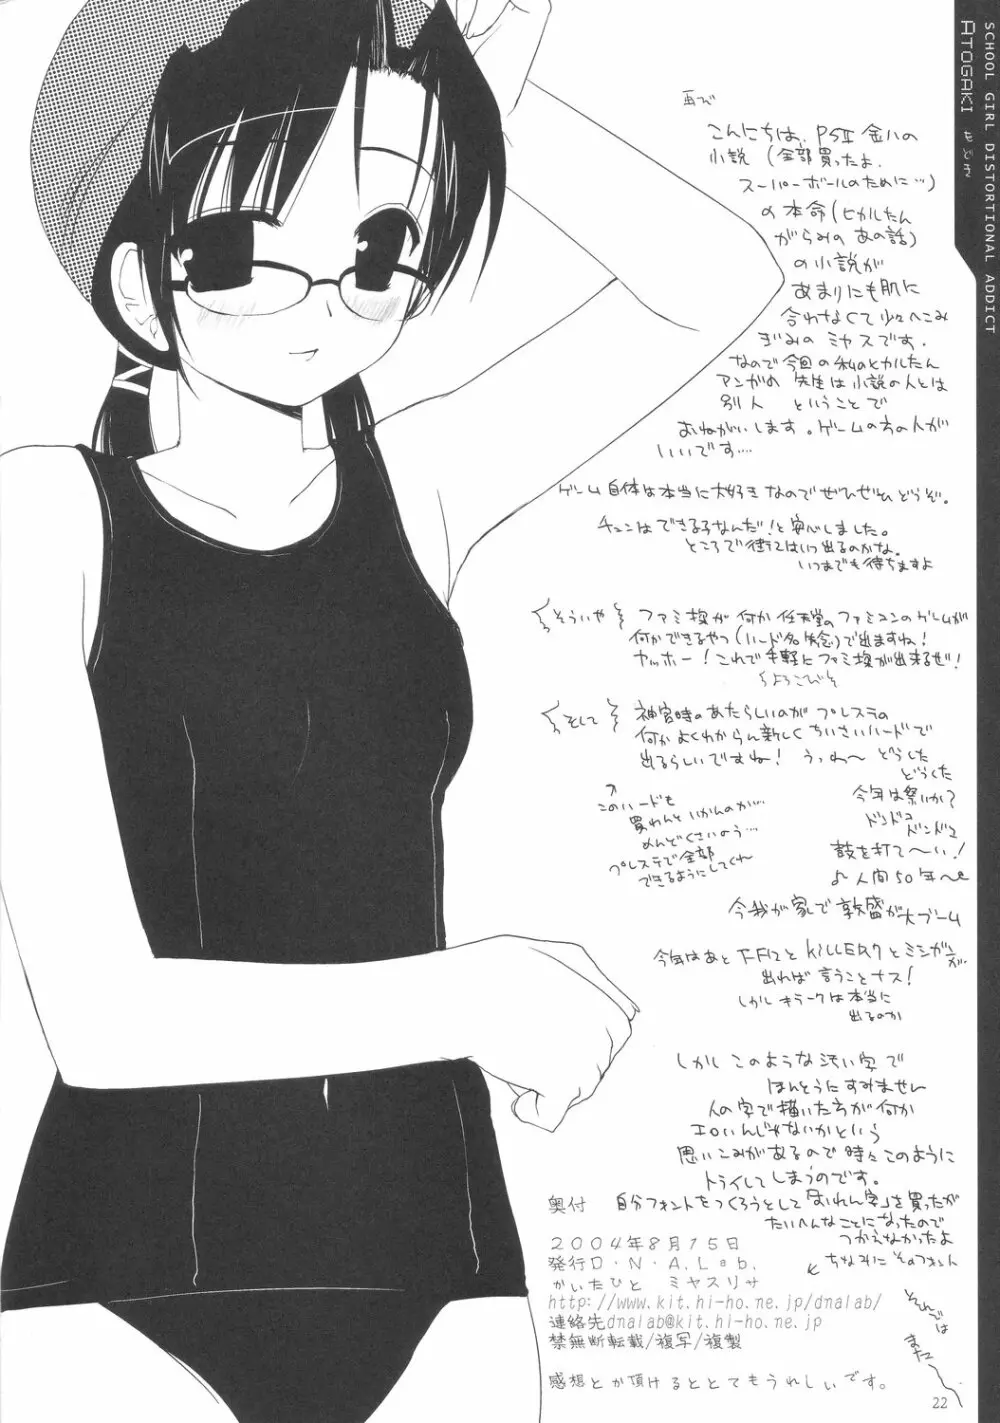 SCHOOL GIRL DISTORTIONAL ADDICT
ATOGAKI
再び
こんにちは、PSⅡ 金八の
小説 (全部買ったよ、
スーパーボールのために…)
の本命(ヒカルたん
がらみの あの話)
の小説が
あまりにも肌に
合わなくて少々へこみ
ぎみの ミヤスです。
なので今回の私のヒカルたん
アンがめ 先生は小説の人とは
別人 ということで
おねがいします。ゲームの方の人が
いいです….
ゲーム自体は本当に大好きなのでぜひぜひどうぞ。
チュンはできる子なんだ!と安心しました。
ところで はいつ出るのかな。
いつまでも待ちますよ
そういや ファミ探が何か任天堂のファミコンのゲームが
何かできるやつ(ハード名失念)で出ますね!
ヤッホー!これで手軽にファミ探が出来るぜ!
よろこびぞ
そして 神宮時のあたらしいのが プレステの
何かよくわからん新しくちいさいハードで
出るらしいですね! うっわ〜 どうした
どうした
このハードも
買わんといかんのか…
めんどくさいのう…
プレステで全部
できるようにしてくれ
今年は祭いか?
ドンドコ
ドンドコ
鼓を打て〜い!
♪人間50年〜
今我が家で敦盛が大ブーム
今年はあと FF12と KILLER7と ミシガンが
出れば言うことナス!
しかし キラー7は本当に
出るのか
しかしこのような汚い字で
ほんとうにすみません
人の字で描いた方が何か
エロいんじゃないかという
思いこみがあるので時々このように
トライしてしまうのです。
自分フォントをつくろうとして「おれん字」を買ったが
たいへんなことになったので
つかえなかったよ
ちなみに そのフォント
奥付
2004年8月15日
発行D・N・A.Lab.
かいたひと ミヤスリサ
http://www.kit.hi-ho.ne.jp/dnalab/
連絡先dnalab@kit.hi-ho.ne.jp
禁無断転載/複写/複製
感想とか頂けるととてもうれしいです。
それでは
また〜
22